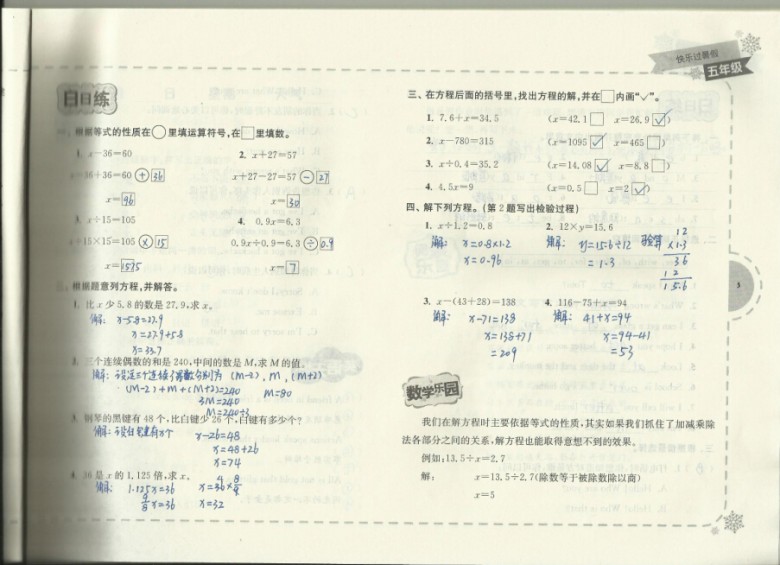 快乐过暑假
五年级
日日练
一、根据等式的性质在○里填运算符号,在□里填数。
1. x-36=60
2. x+27=57
x-36+36=60 + 36
x+27-27=57 - 27
x=96
x=30
3. x÷15=105
4. 0.9x=6.3
x÷15×15=105 × 15
0.9x÷0.9=6.3 ÷ 0.9
x=1575
x=7
二、根据题意列方程,并解答。
1. 比 x 少 5.8 的数是 27.9,求 x。
解: x-5.8=27.9
x=27.9+5.8
x=33.7
2. 三个连续偶数的和是 240,中间的数是 M,求 M 的值。
(M-2), M, (M+2)
(M-2)+M+(M+2)=240 M=80
3M=240
M=240÷3
3. 钢琴的黑键有 48 个,比白键少 26 个,白键有多少个?
解: x-26=48
x=48+26
x=74
4. 36 是 x 的 1.125 倍,求 x。
解: 1.125x=36
x=36×
x=36
x=32
三、在方程后面的括号里,找出方程的解,并在□内画“✓”。
1. 7.6+x=34.5 (x=42.1 □ x=26.9 ✓)
2. x-780=315 (x=1095 ✓ x=465 □)
3. x÷0.4=35.2 (x=14.08 ✓ x=8.8 □)
4. 4.5x=9 (x=0.5 □ x=2 ✓)
四、解下列方程。(第 2 题写出检验过程)
1. x÷1.2=0.8
2. 12×y=15.6
解: x=0.8×1.2
x=0.96
解: y=15.6÷12
=1.3
验算
12
×1.3
36
12
15.6
3. x-(43+28)=138
4. 116-75+x=94
解: x-71=138
x=138+71
=209
解: 41+x=94
x=94-41
=53
数学乐园
我们在解方程时主要依据等式的性质,其实如果我们抓住了加减乘除
法各部分之间的关系,解方程也能取得意想不到的效果。
例如:13.5÷x=2.7
解: x=13.5÷2.7(除数等于被除数除以商)
x=5